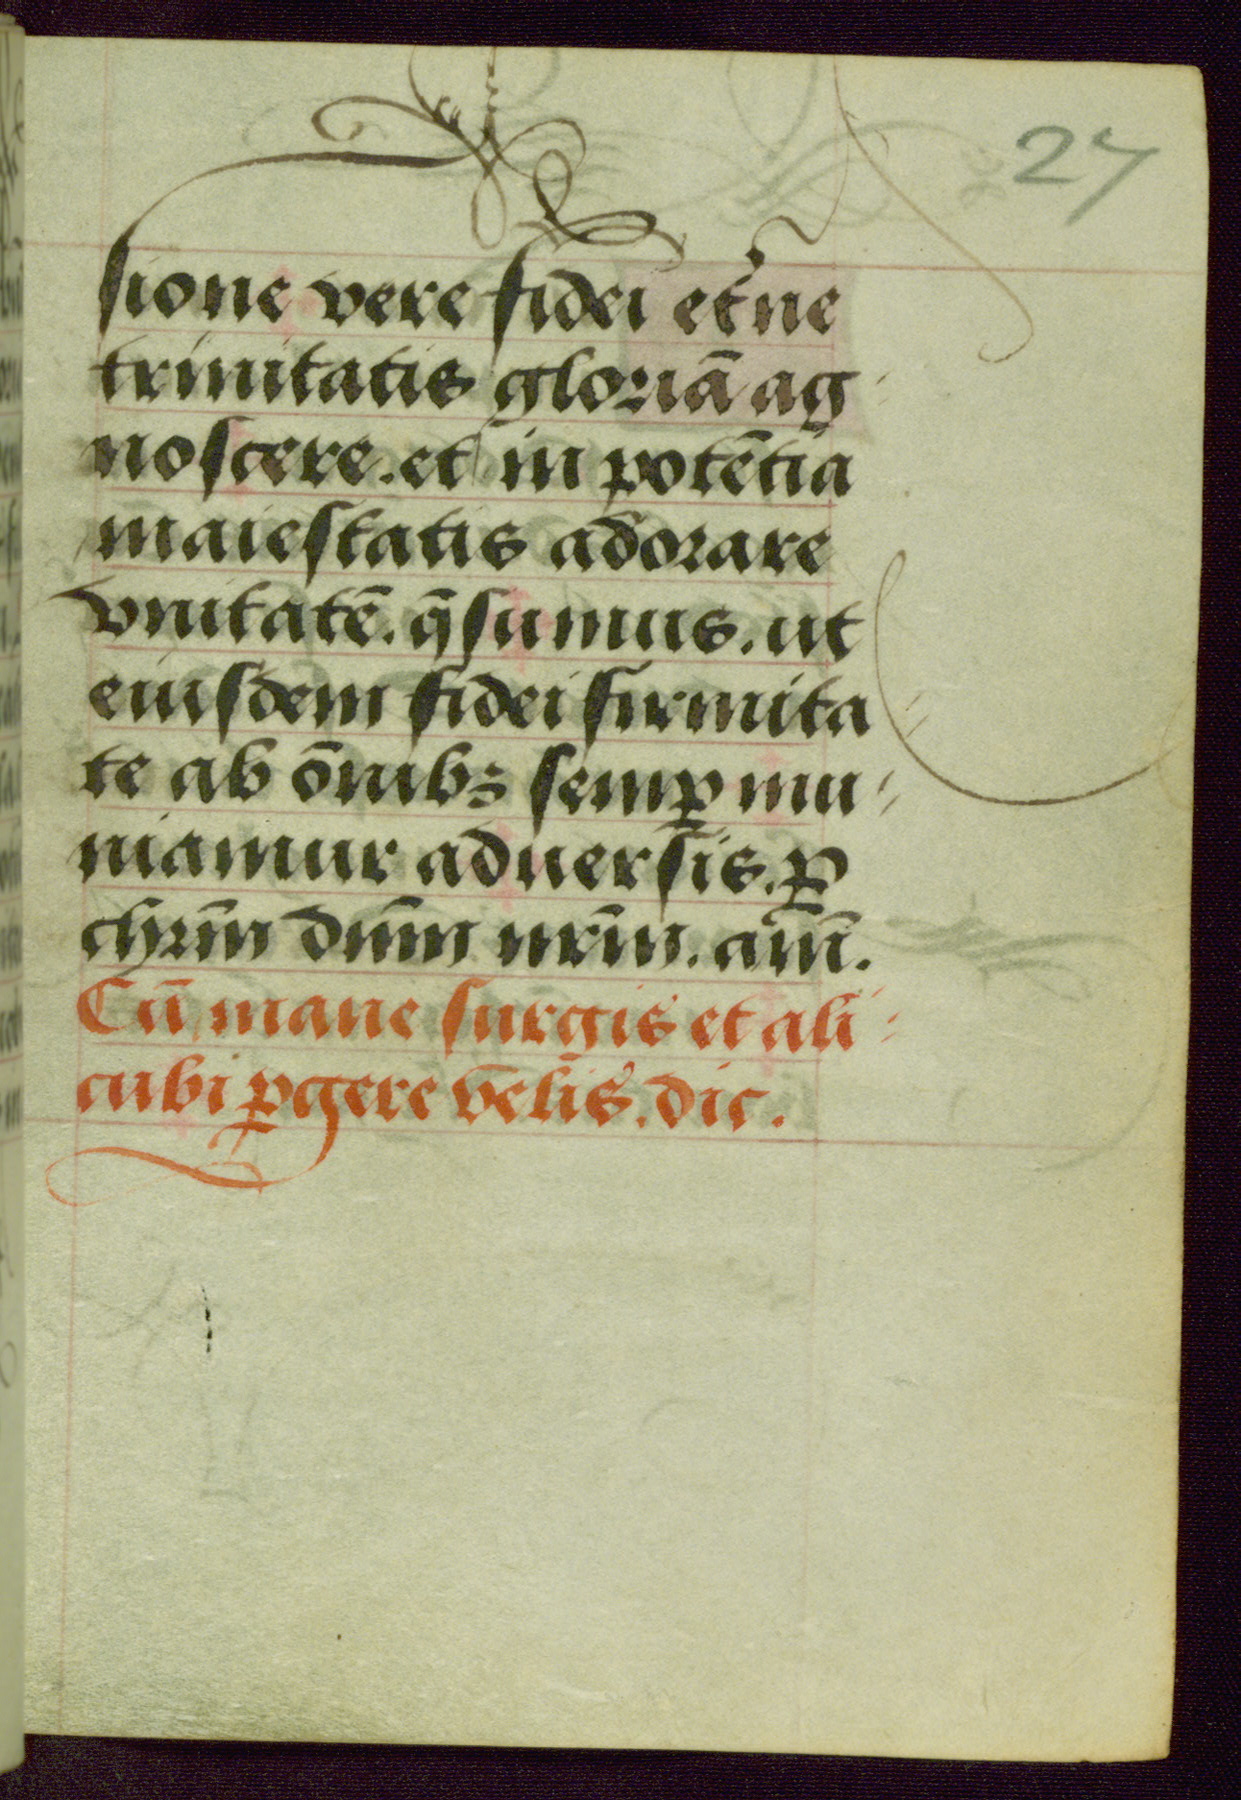 27
sione vere fidei et̃ne
trinitatis gloriā ag
noscere. et in potētia
maiestatis adorare
vnitatē. q̄sumus. ut
eiusdem fidei firmita
te ab om̄ibꝫ semꝑ mu
niamur aduersis. ꝑ
chr̄m dn̄m nr̄m. am̄.
Cū mane surgis et ali
cubi ꝑgere vel̄is. dic.